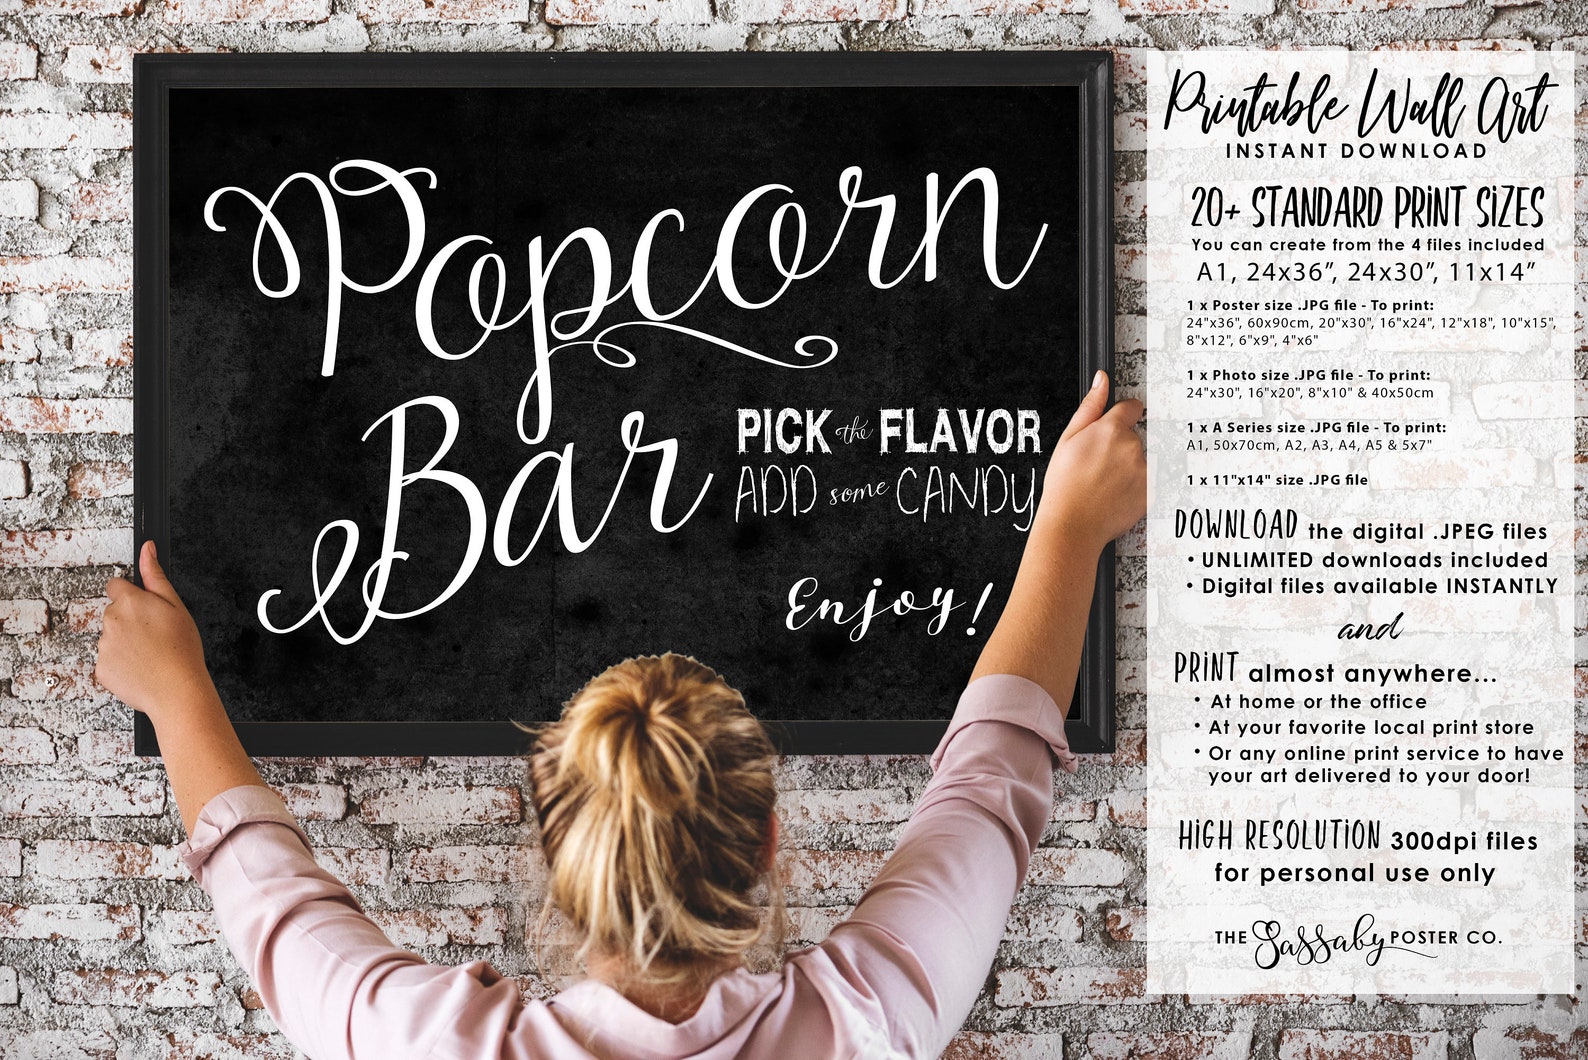 Popcorn
Bar
PICK the FLAVOR
ADD some CANDY
Enjoy!
Printable Wall Art
INSTANT DOWNLOAD
20+ STANDARD PRINT SIZES
You can create from the 4 files included
A1, 24x36”, 24x30”, 11x14”
1 x Poster size .JPG file - To print:
24"x36", 60x90cm, 20"x30", 16"x24", 12"x18", 10"x15",
8"x12", 6"x9", 4"x6"
1 x Photo size .JPG file - To print:
24"x30", 16"x20", 8"x10" & 40x50cm
1 x A Series size .JPG file - To print:
A1, 50x70cm, A2, A3, A4, A5 & 5x7"
1 x 11"x14" size .JPG file
DOWNLOAD the digital .JPEG files
• UNLIMITED downloads included
• Digital files available INSTANTLY
and
PRINT almost anywhere...
• At home or the office
• At your favorite local print store
• Or any online print service to have
your art delivered to your door!
HIGH RESOLUTION 300dpi files
for personal use only
THE Sassaby POSTER CO.